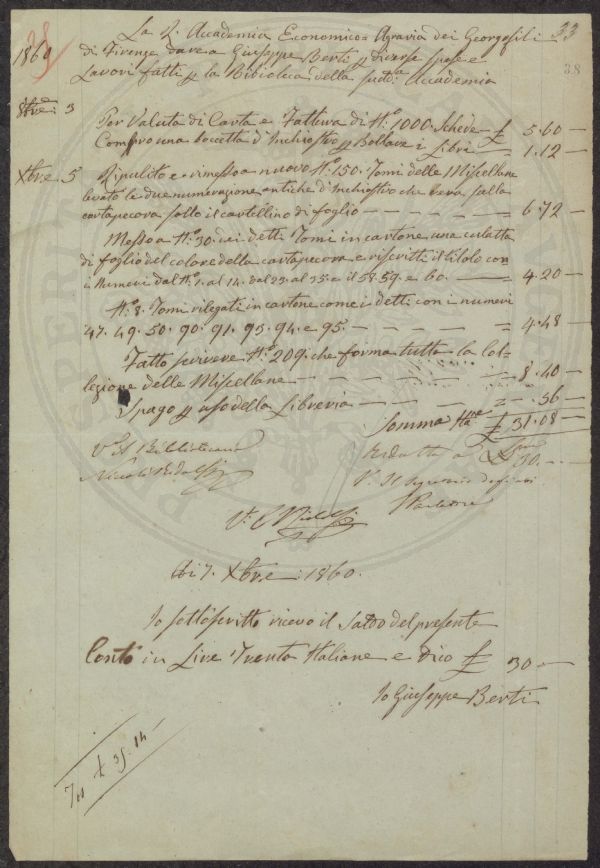 La R. Accademia Economico=Agraria dei Georgofili 33
38
1860 di Firenze dare a Giuseppe Berti p diverse spese e
Lavori fatti p la Biblioteca della sudd.a Accademia
8bre: 3
Per Valuta di Carta e Fattura di N.o 1000. Schede £ 5.60 —
Compro una boccetta d'Inchiostro p Bollare i libri = 1.12 —
Xbre. 5 Ripulito e rimesso a nuovo N.o 150. Tomi delle Miscellane
levato le due numerazione antiche d'Inchiostro che vera sulla
cartapecora sotto il cartellino di foglio — — — — — = 6.72 —
Messo a N.o 30. dei detti Tomi in cartone una culatta
di foglio del colore della cartapecora e riscritti il titolo con
i Numeri dal N.o 1. al 14. dal 23. al 35. e il 58. 59. e 60. — = 4.20 —
N.o 8. Tomi rilegati in cartone come i detti con i numeri
47. 49. 50. 90. 91. 93. 94. e 95. — — — — = 4.48 —
Fatto scrivere N.o 209. che forma tutta la col=
lezione delle Miscellane — — — — — 8.40 —
Spago p uso della Libreria — — — — = .56 —
Somma £ 31.08 —
V.o Il Bibliotecario Ridotta a £ 30. —
V.o Il Segretario degli
Di 7. Xbre: 1860.
Io sottoscritto ricevo il Saldo del presente
Conto in Lire Trenta Italiane e dico £ 30 —
Io Giuseppe Berti
£ 35.14